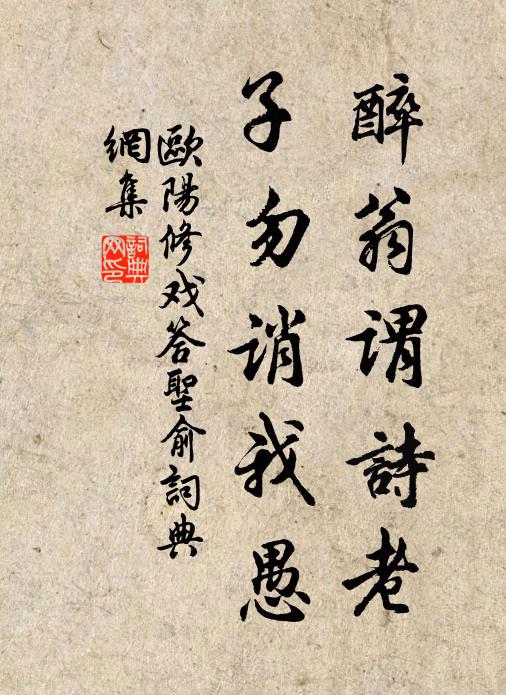 醉翁謂詩老
子勿誚我愚
歐陽修戏答聖俞詞典
網集
詞典网印